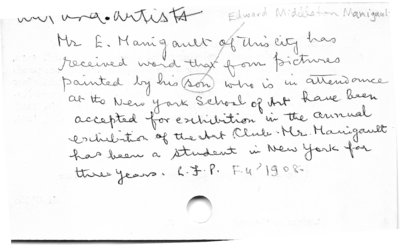 artists Edward Middleton Manigault
Mr E. Manigault of this city has
received word that from pictures
painted by his son who is in attendance
at the New York School of Art have been
accepted for exhibition in the annual
exhibition of the Art Club. Mr. Manigault
has been a student in New York for
three years. F 4 1908.